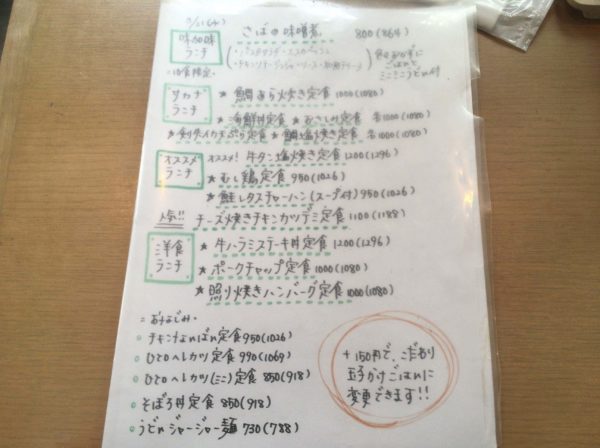 味加味
ランチ
さばの味噌煮 800(864)
ごはんと
ミニうどん付
=10食限定=
サカナ
ランチ
★鯛あら炊き定食 1000(1080)
★海鮮丼定食 ★むさしみ定食 各1000(1080)
天ぷら定食 ★鯛塩焼き定食 各1000(1080)
オススメ
ランチ
オススメ! 牛タン塩焼き定食 1200(1296)
★むし鶏定食 950(1026)
★鮭レタスチャーハン(スープ付) 950(1026)
人気!! チーズ焼きチキンカツデミ定食 1100(1188)
洋食
ランチ
★牛ハラミステーキ丼定食 1200(1296)
★ポークチャップ定食 1000(1080)
★照り焼きハンバーグ定食 1000(1080)
=おなじみ=
○チキンなんばん定食 950(1026)
○ひとロヘレカツ定食 990(1069)
○ひとロヘレカツ(ミニ)定食 850(918)
○そぼろ丼定食 850(918)
○うどんジャージャー麺 730(788)
+150円で、こだわり
玉子かけごはんに
変更できます!!